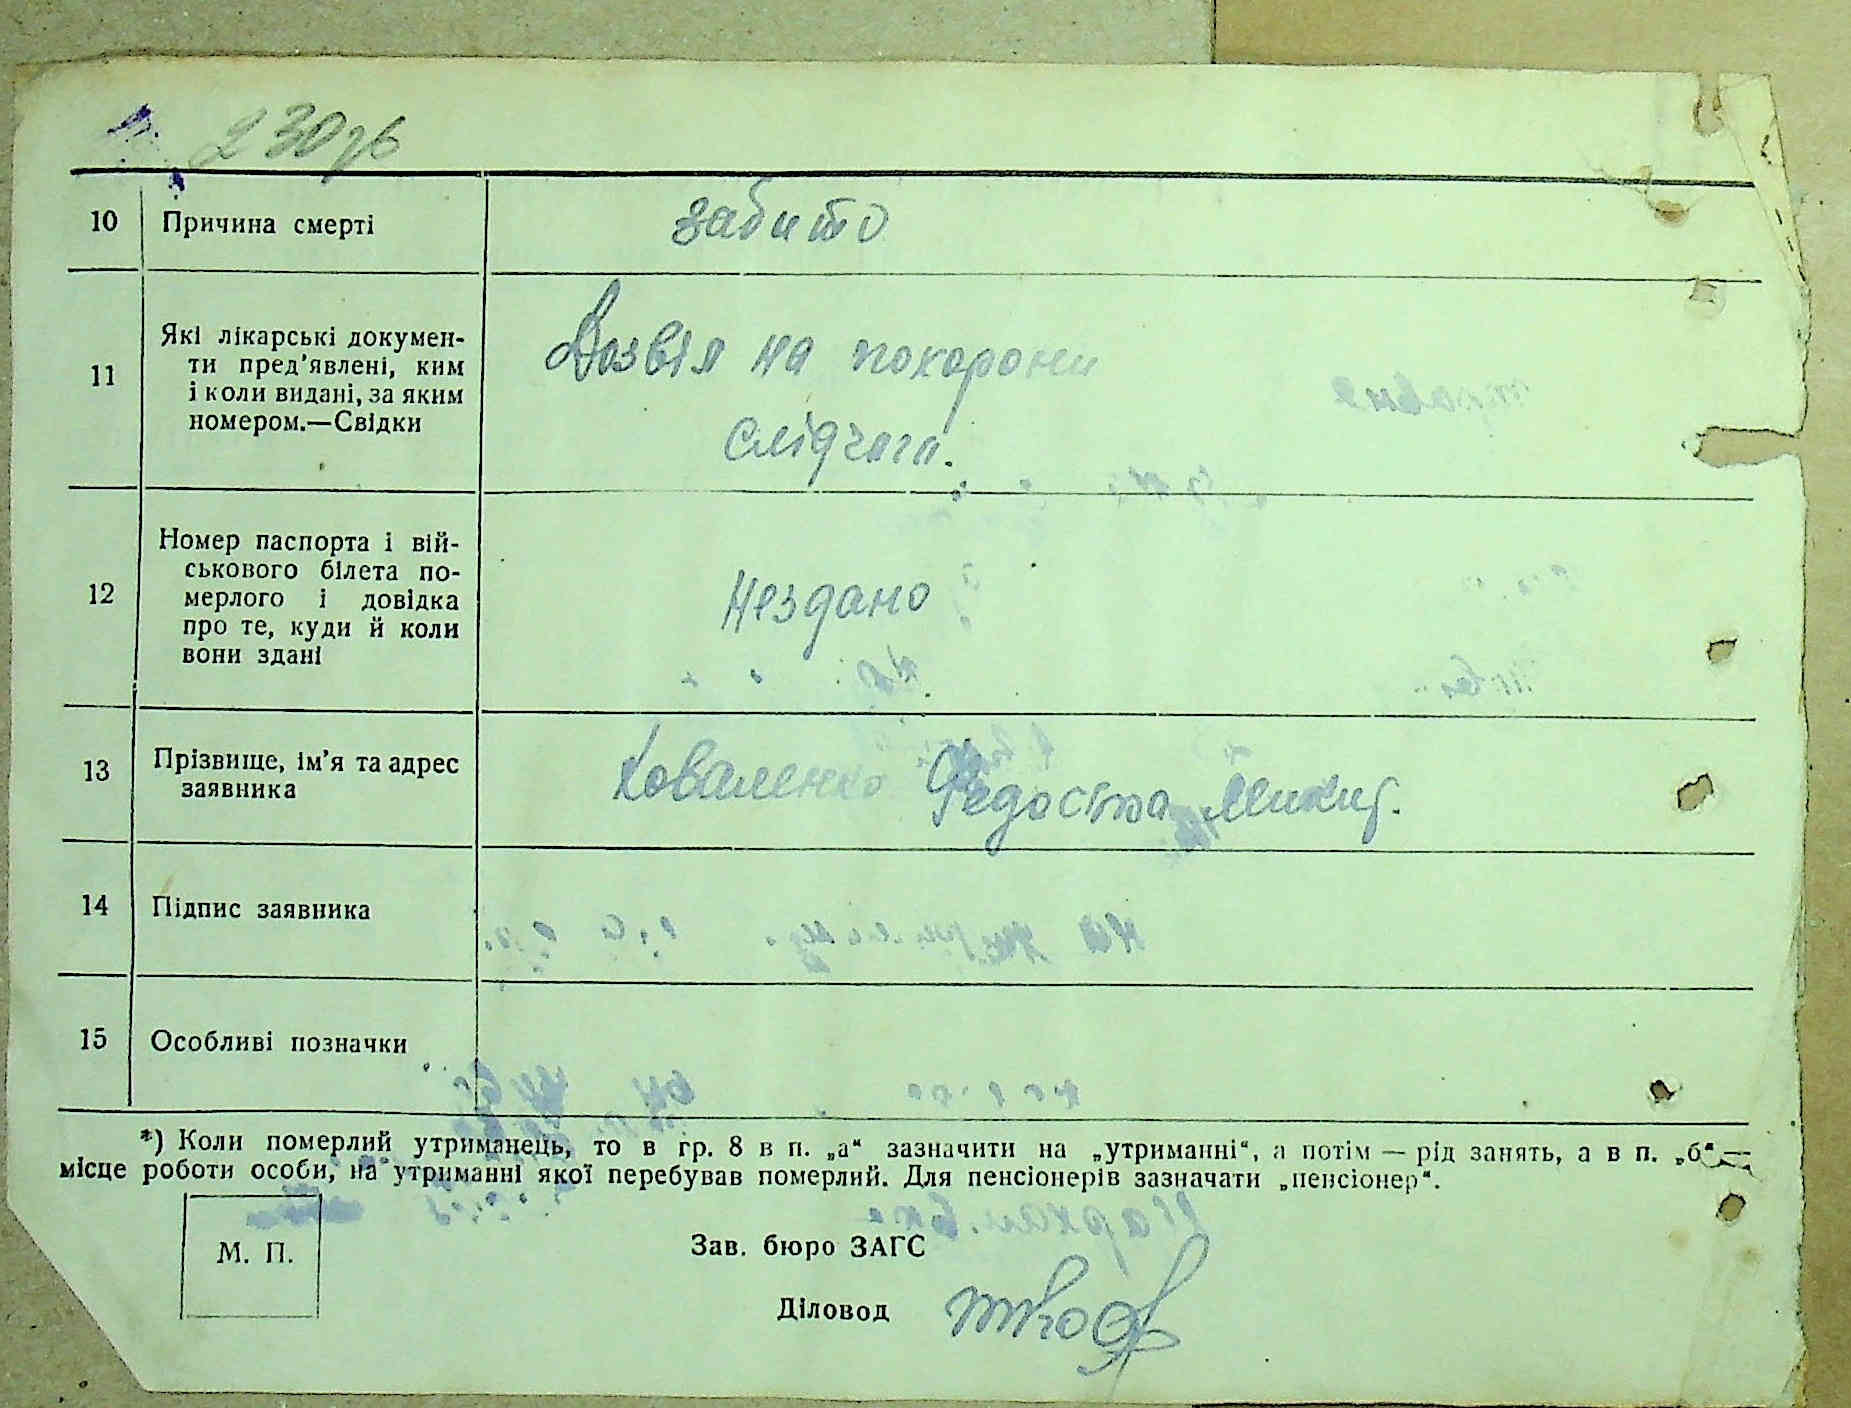 230зв
10 Причина смерті забито
11 Які лікарські докумен-
ти пред'явлені, ким
і коли видані, за яким
номером.—Свідки
Дозвіл на похорони
слідчого.
12 Номер паспорта і вій-
ськового білета по-
мерлого і довідка
про те, куди й коли
вони здані
Нездано
13 Прізвище, ім'я та адрес
заявника
Коваленко Федоська Микит.
14 Підпис заявника
15 Особливі позначки
*) Коли померлий утриманець, то в гр. 8 в п. „а“ зазначити на „утриманні“, а потім — рід занять, а в п. „б“ —
місце роботи особи, на утриманні якої перебував померлий. Для пенсіонерів зазначати „пенсіонер“.
М. П.
Зав. бюро ЗАГС
Діловод